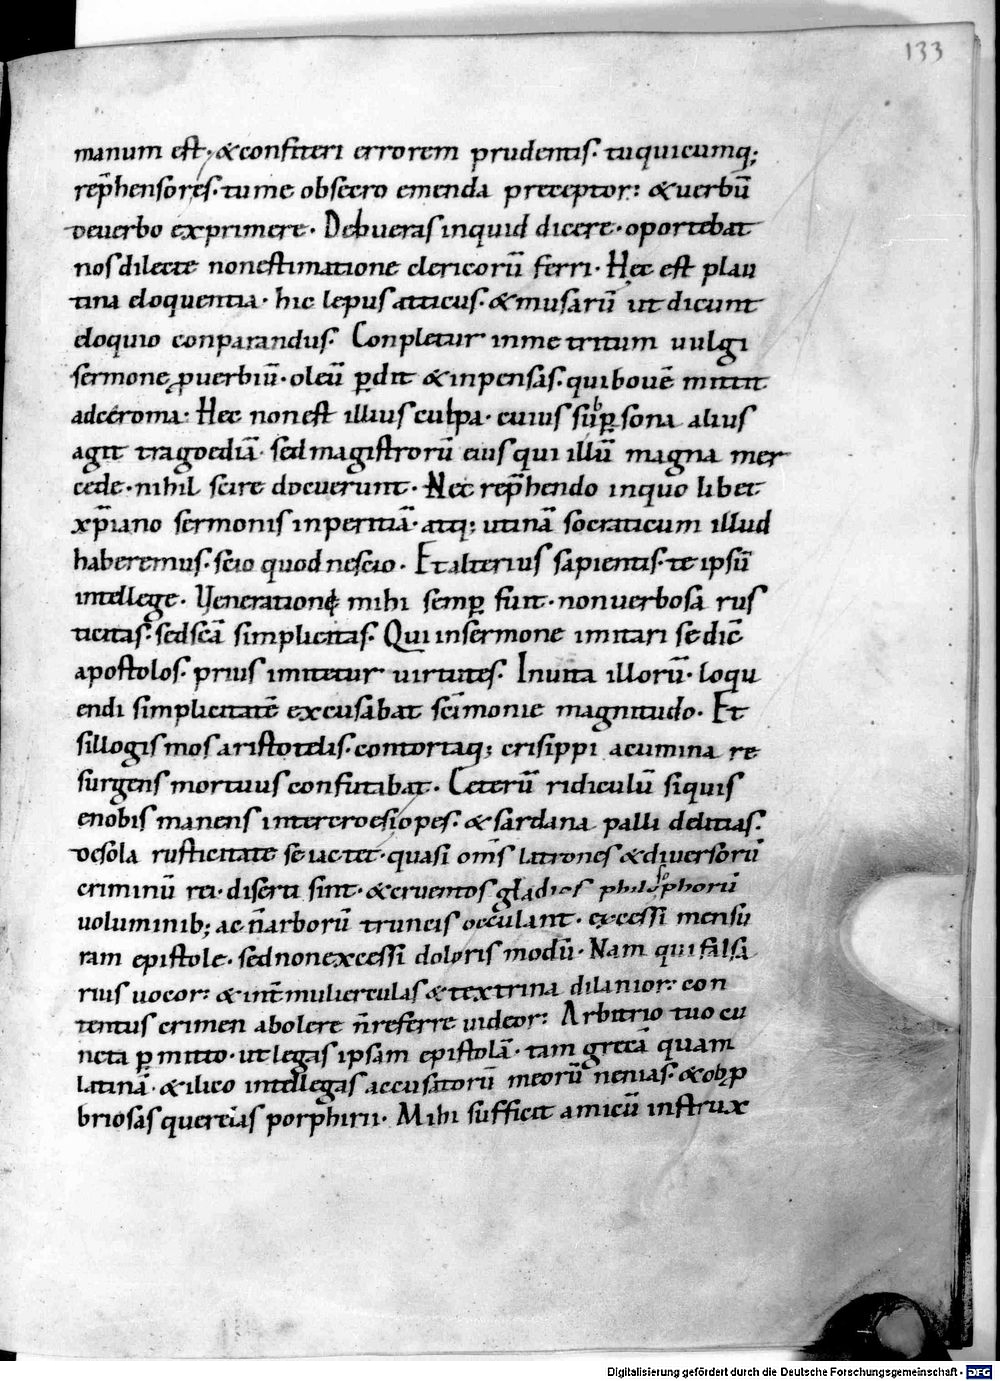 133
manum est· &confiteri errorem prudentis· tuquicumq;
rep̄hensores· tu me obsecro emenda preceptor: & uerbū
deuerbo exprimere· Debueras inquid dicere· oportebat
nos dilecte non estimatione clericorū ferri· Hęc est plau
tina eloquentia· hic lepus atticus· & musarū ut dicunt
eloquio conparandus· Conpletur in me tritum uulgi
sermone ꝓuerbiū· oleū ꝑdit & inpensas· qui bouē mittit
ad ceroma· Hec non est illius culpa· cuius sub ꝑsona alius
agit tragoediā· sed magistrorū eius qui illū magna mer
cede· nihil scire docuerunt· Nec rep̄hendo in quo libet
xp̄iano sermonis inperitiā· atq; utinā socraticum illud
haberemus· scio quod nescio· Et alterius sapientis· te ipsū
intellege· Venerationę mihi semꝑ fuit· non uerbosa rus
ticitas· sed scā simplicitas· Qui in sermone imitari se dic̄
apostolos· prius imitetur uirtutes· In uita illorū· loqu
endi simplicitatē excusabat scīmonie magnitudo· Et
sillogismos aristotelis· contortaq; crisippi acumina re
surgens mortuus confutabat· Ceterū ridiculū siquis
enobis manens inter croesi opes· & sardana palli delitias·
de sola rusticitate se iactet· quasi om̄s latrones & diuersorū
criminū rei· diserti sint· & cruentos gladios philosophorū
uoluminib; ac n̄ arborū truncis occulant· excessi mensu
ram epistole· sed non excessi doloris modū· Nam qui falsa
rius uocor: & int̄ mulierculas & textrina dilanior: con
tentus crimen abolere n̄ referre uideor: Arbitrio tuo cu
ncta ꝑmitto· ut legas ipsam epistolā· tam grecā quam
latinā· & ilico intellegas accusatorū meorū nenias· & obp
briosas querelas porphirii· Mihi sufficit amicū instrux
Digitalisierung gefördert durch die Deutsche Forschungsgemeinschaft - DFG